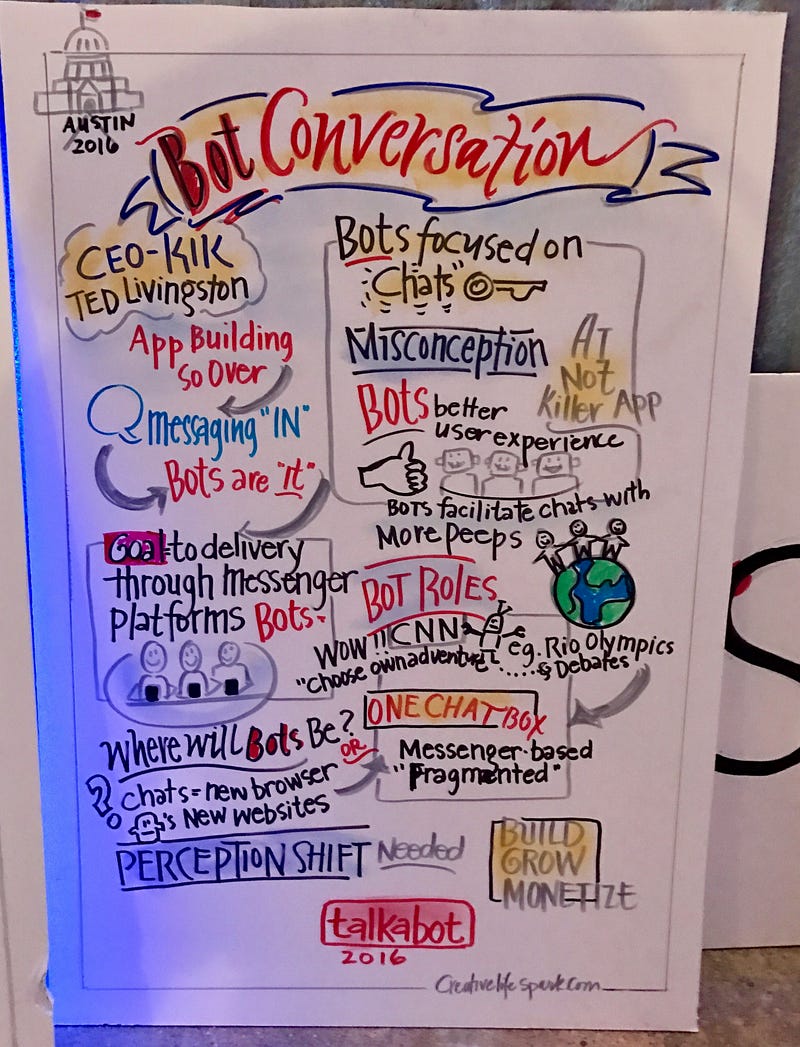 AUSTIN
2016
Bot Conversation
CEO-KIK
TED Livingston
App Building
So Over
messaging "IN"
Bots are "it"
Goal-to delivery
through Messenger
platforms Bots.
Bots focused on
"Chats"
Misconception
AI
Not
Killer App
Bots better
user experience
BOTS facilitate chats with
More peeps
WWW
BOT ROLES
WOW!! CNN
"choose own adventure"
eg. Rio Olympics
& Debates
ONE CHAT BOX
Messenger-based
"Fragmented"
Where will Bots Be?
OR
?
chats = new browser
's New websites
PERCEPTION SHIFT Needed
BUILD
GROW
MONETIZE
talkabot
2016
Creativelifespark.com
S